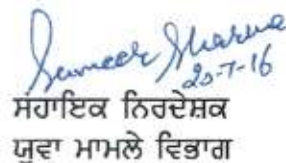 Sumeer Sharma
20-7-16
ਸਹਾਇਕ ਨਿਰਦੇਸ਼ਕ
ਯੁਵਾ ਮਾਮਲੇ ਵਿਭਾਗ